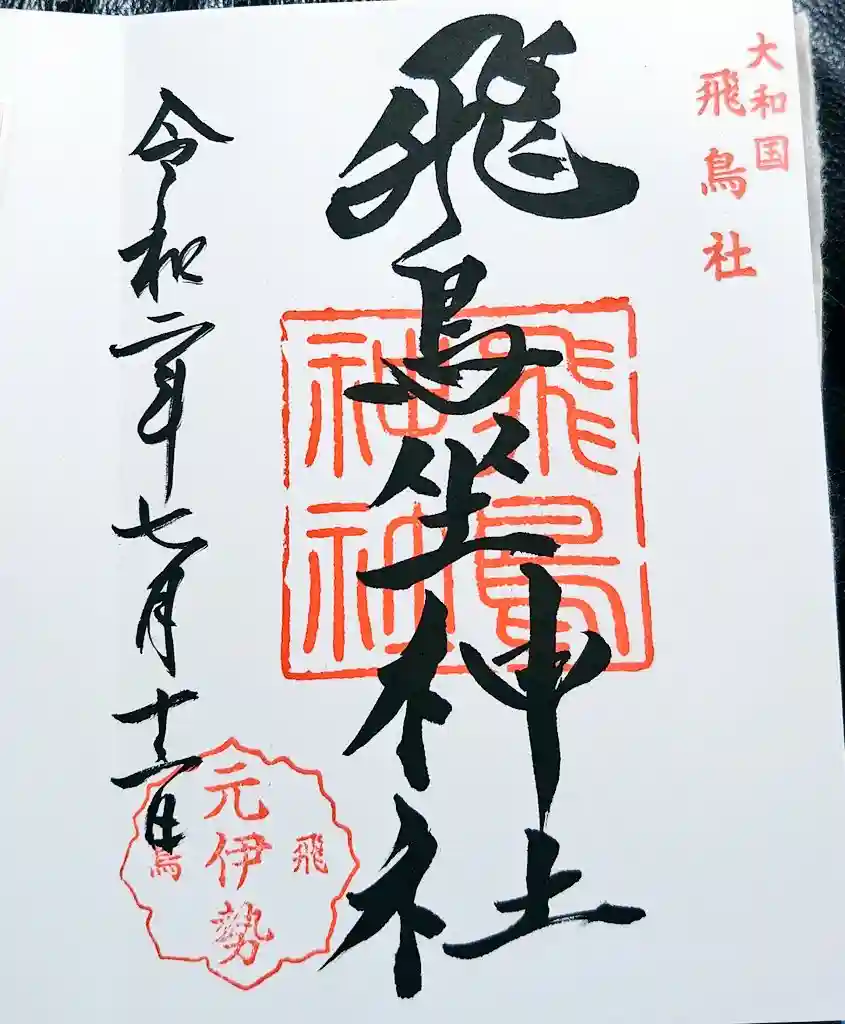 大和国
飛鳥社
飛鳥坐神社
飛鳥
神社
令和二年七月十二日
飛鳥
元伊勢